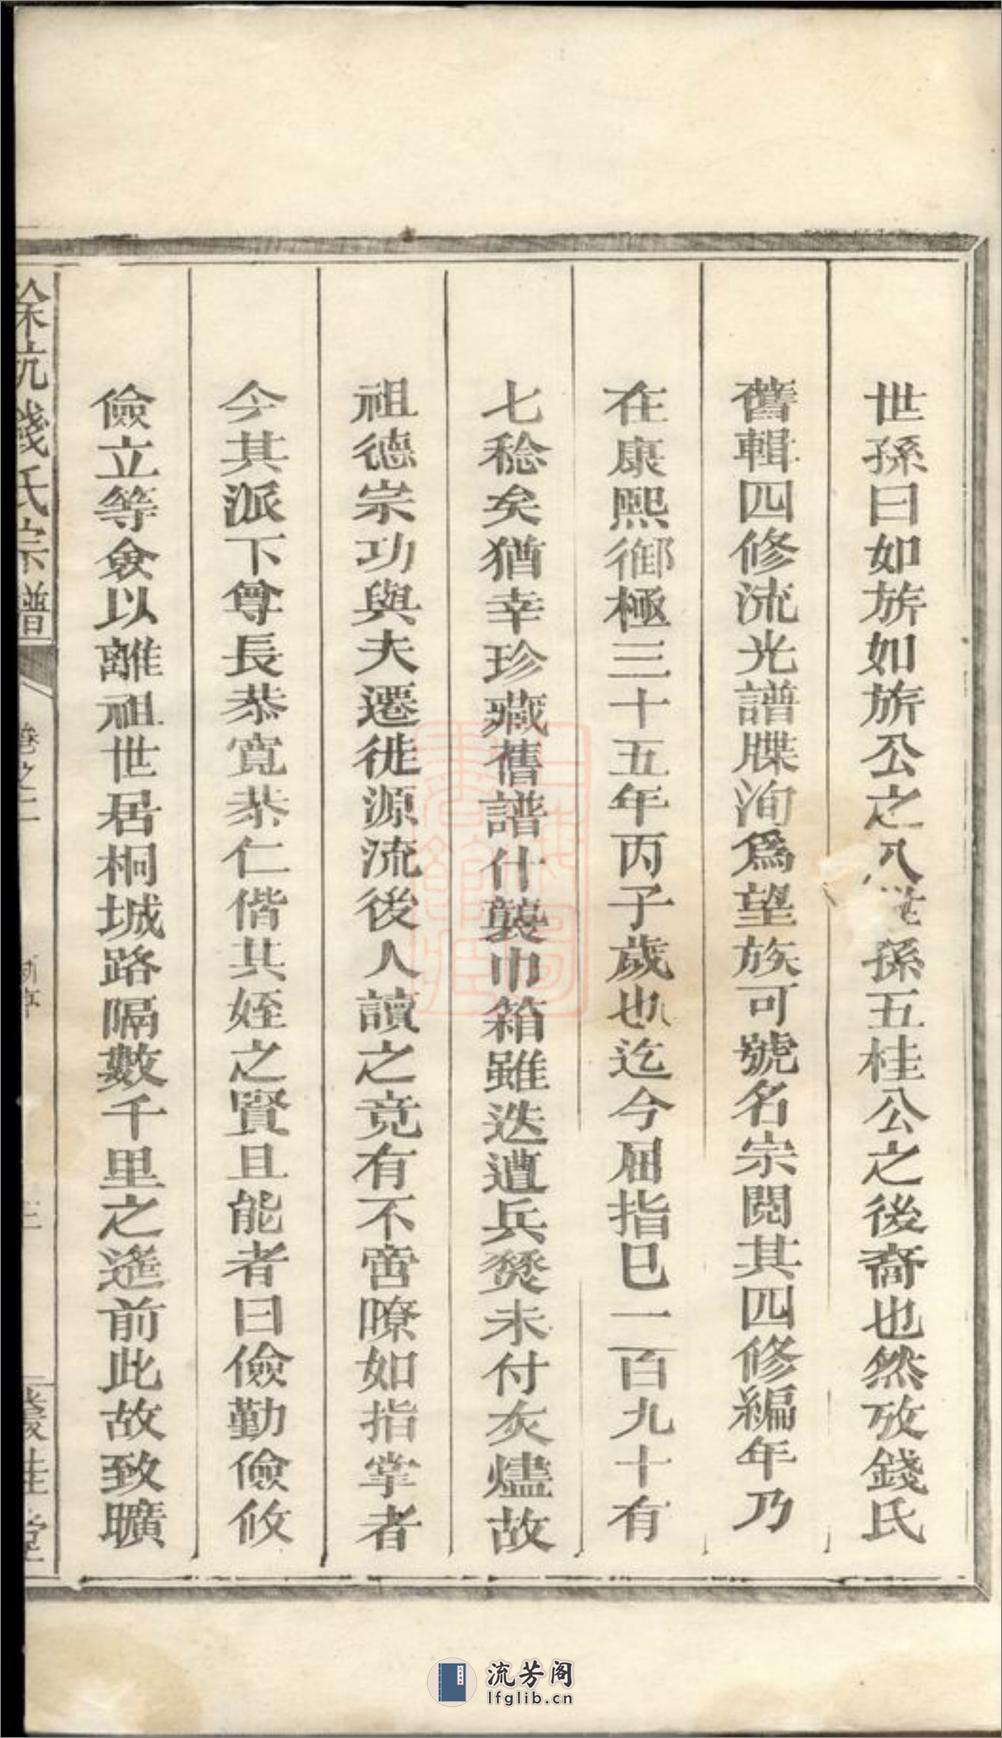 世孫曰如旂如旂公之八世孫五桂公之後裔也然攷錢氏
舊輯四修流光譜牒洵爲望族可號名宗閱其四修編年乃
在康熙御極三十五年丙子歲也迄今屈指已一百九十有
七稔矣猶幸珍藏舊譜什襲巾箱雖迭遭兵燹未付灰燼故
祖德宗功與夫遷徙源流後人讀之竟有不啻瞭如指掌者
今其派下尊長恭寬恭仁偕其姪之賢且能者曰儉勤儉攸
儉立等僉以離祖世居桐城路隔數千里之遙前此故致曠
餘杭錢氏宗譜
卷之二
三
桂堂
流芳阁
lfglib.cn